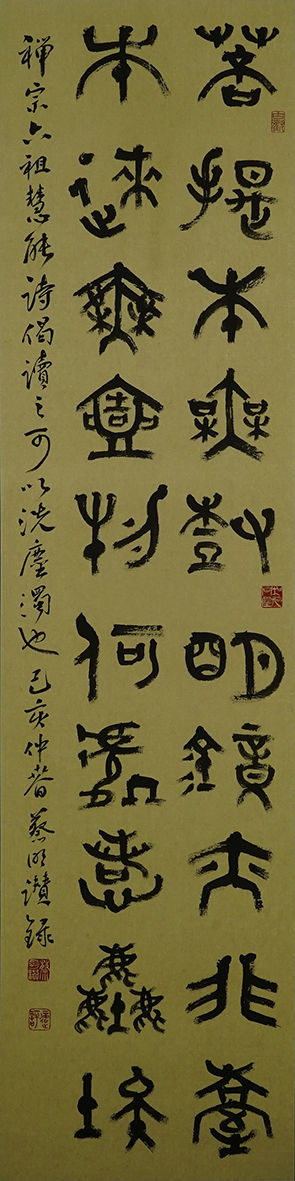 菩提本無樹明鏡亦非臺
本來無壹物何處惹塵埃
禪宗六祖慧能詩偈讀之可以洗塵濁也己亥仲春蔡明讚錄